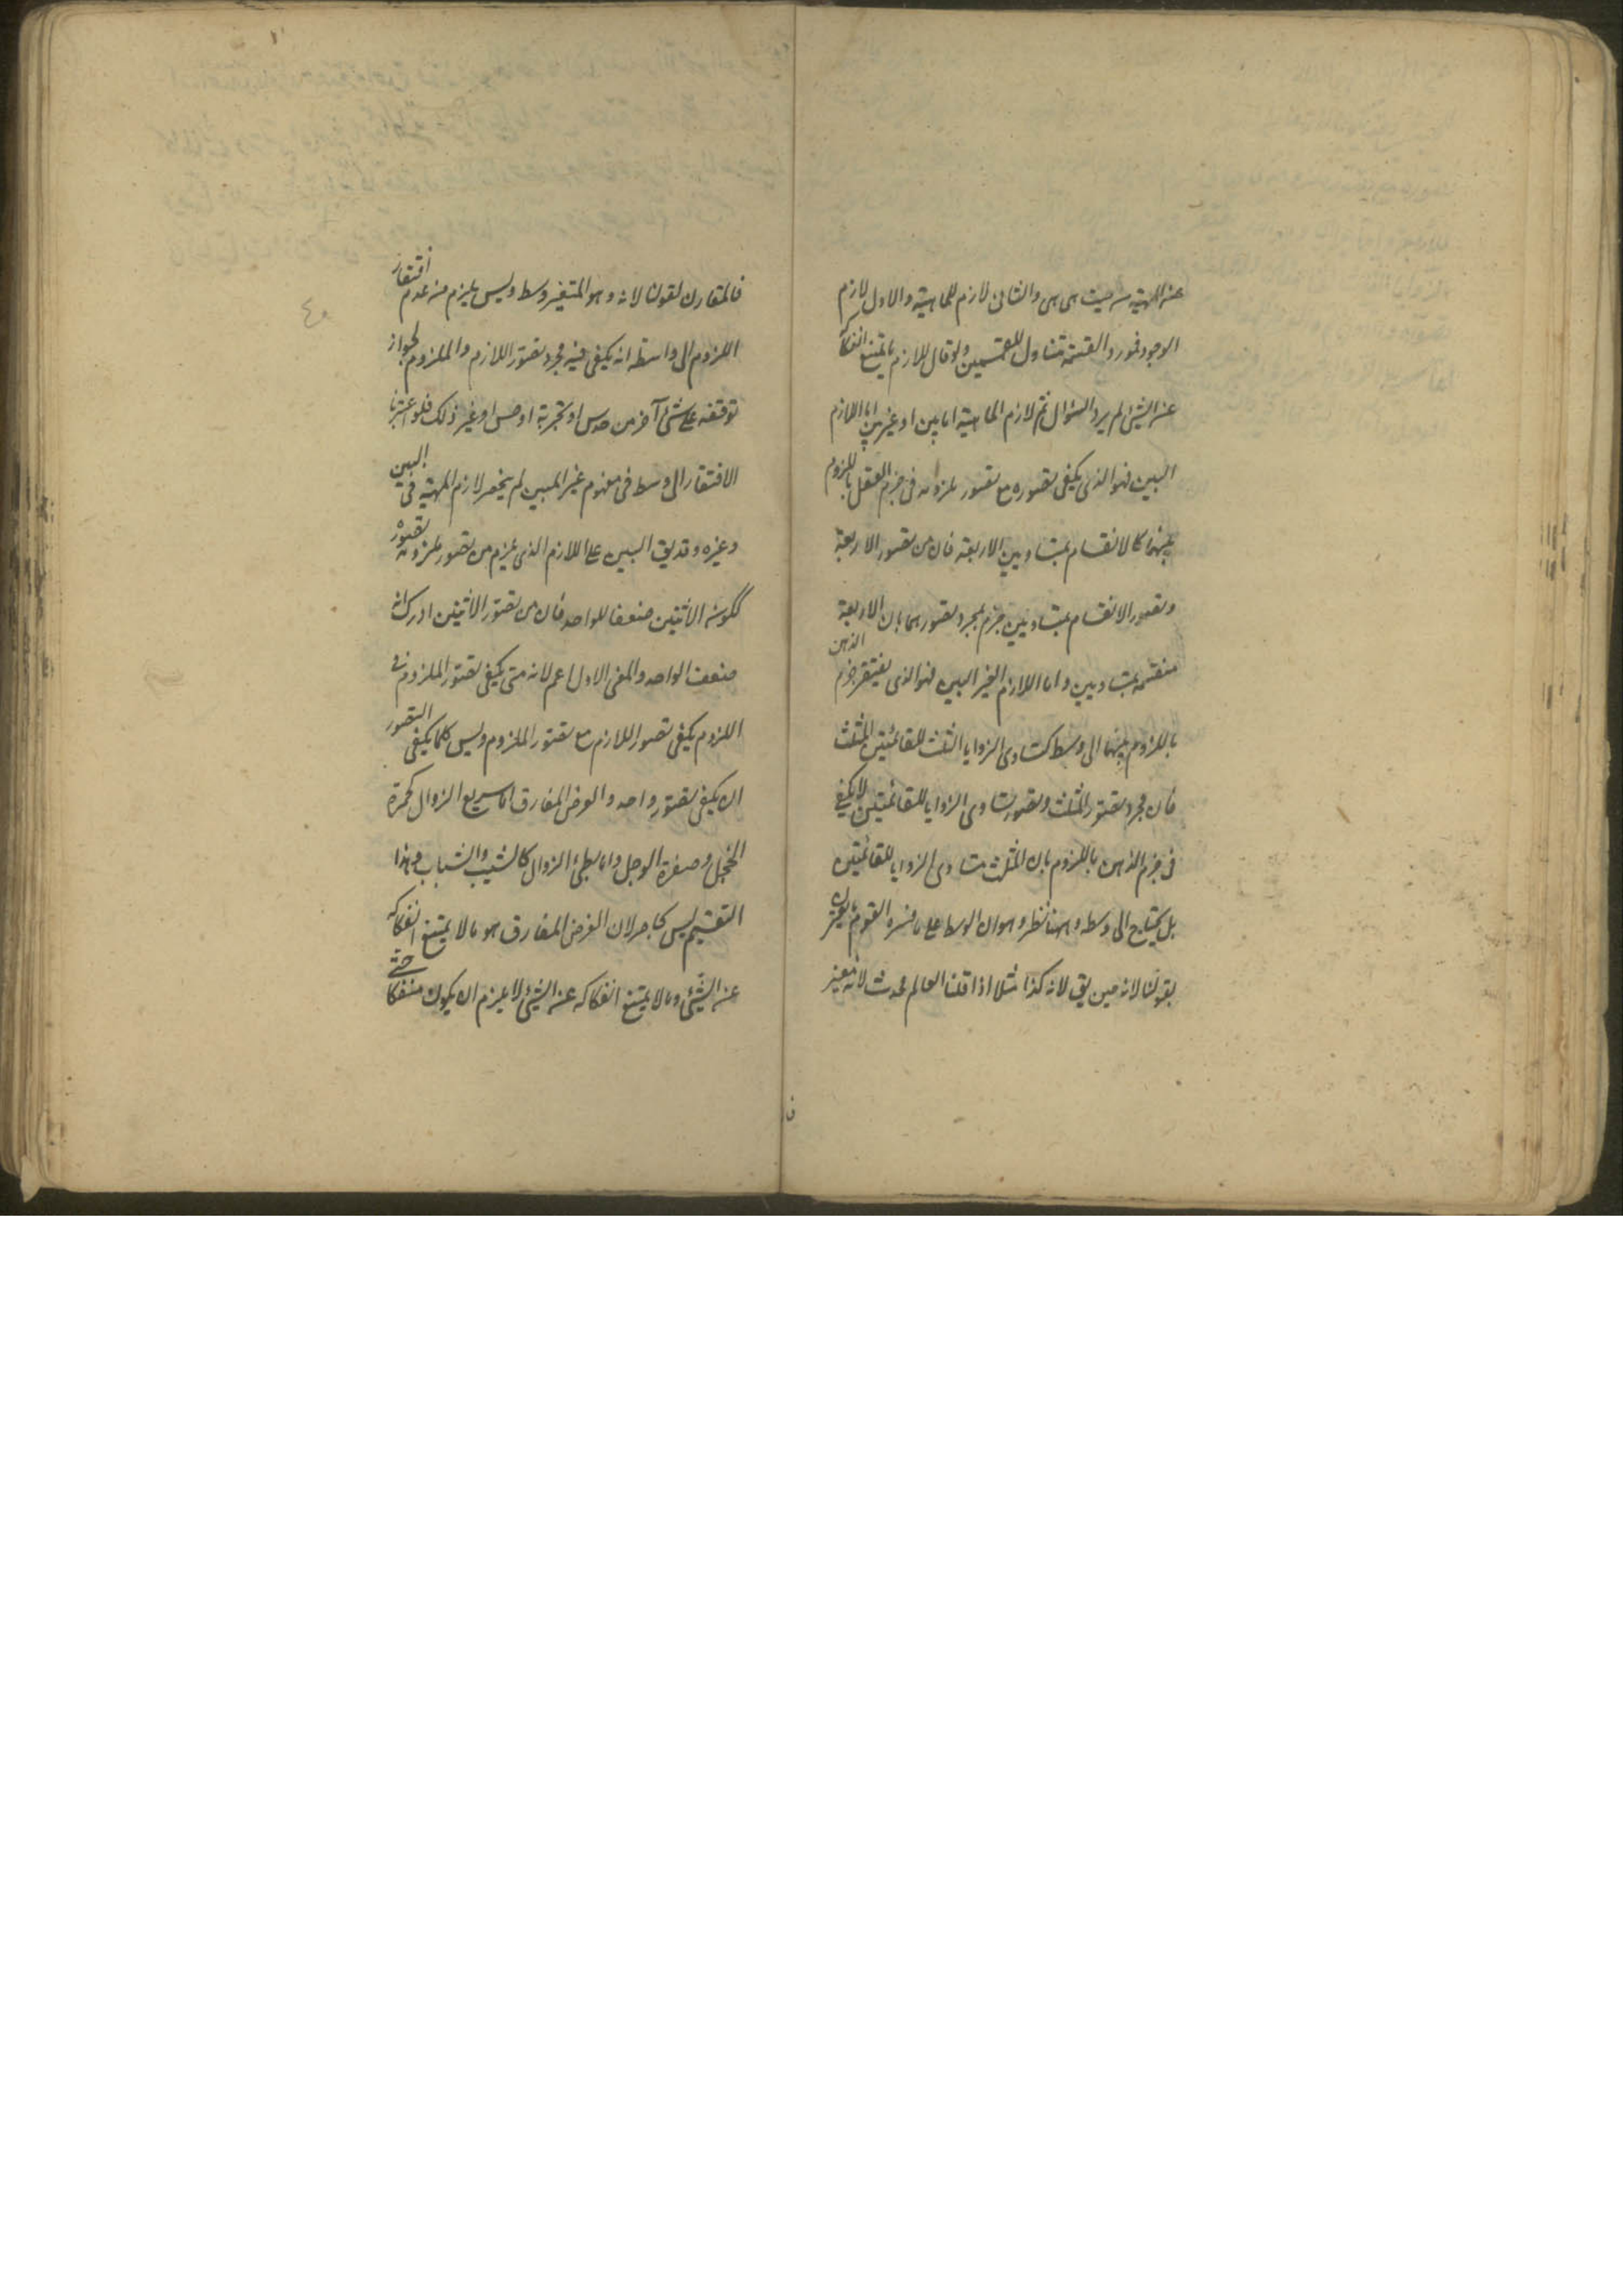 عن المهية من حيث هي هي والثاني لازم للماهية والاول لازم
الوجود فمورد القسمة متناول للقسمين ولو قال اللازم ما يمتنع انفكاكه
عن الشيء لم يرد السؤال ثم لازم الماهية اما بين او غير بين اما اللازم
البين فهو الذي يكفي تصوره مع تصور ملزومه في جزم العقل باللزوم
بينهما كالانقسام بمتساويين للاربعة فان من تصور الاربعة
وتصور الانقسام بمتساويين جزم بمجرد تصورهما بان الاربعة
منقسمة بمتساويين واما اللازم الغير البين فهو الذي يفتقر جزم الذهن
باللزوم بينهما الى وسط كتساوي الزوايا الثلث للقائمتين للمثلث
فان مجرد تصور المثلث وتصور تساوي الزوايا للقائمتين لا يكفي
في جزم الذهن باللزوم بان المثلث متساوي الزوايا للقائمتين
بل يحتاج الى وسط وههنا نظر وهو ان الوسط على ما فسره القوم ما يقترن
بقولنا لانه حين يق لانه كذا مثلا اذا قلنا العالم محدث لانه متغير
فالمقارن لقولنا لانه وهو المتغير وسط وليس يلزم من عدم افتقار
اللزوم الى واسطة انه يكفي فيه مجرد تصور اللازم والملزوم لجواز
توقفه على شيء آخر من حدس او تجربة او حس او غير ذلك فلو اعتبرنا
الافتقار الى وسط في مفهوم غير البين لم ينحصر لازم المهية في البين
وغيره وقد يق البين على اللازم الذي يلزم من تصور ملزومه تصوره
ككون الاثنين ضعفا للواحد فان من تصور الاثنين ادرك انه
ضعف الواحد والمعنى الاول اعم لانه متى يكفي تصور الملزوم في
اللزوم يكفي تصور اللازم مع تصور الملزوم وليس كلما يكفي التصور
ان يكفي تصور واحد والعرض المفارق اما سريع الزوال كحمرة
الخجل وصفرة الوجل واما بطيء الزوال كالشيب والشباب وهذا
التقسيم ليس بحاصر لان العرض المفارق هو ما لا يمتنع انفكاكه
عن الشيء وما لا يمتنع انفكاكه عن الشيء لا يلزم ان يكون منفكا حتى